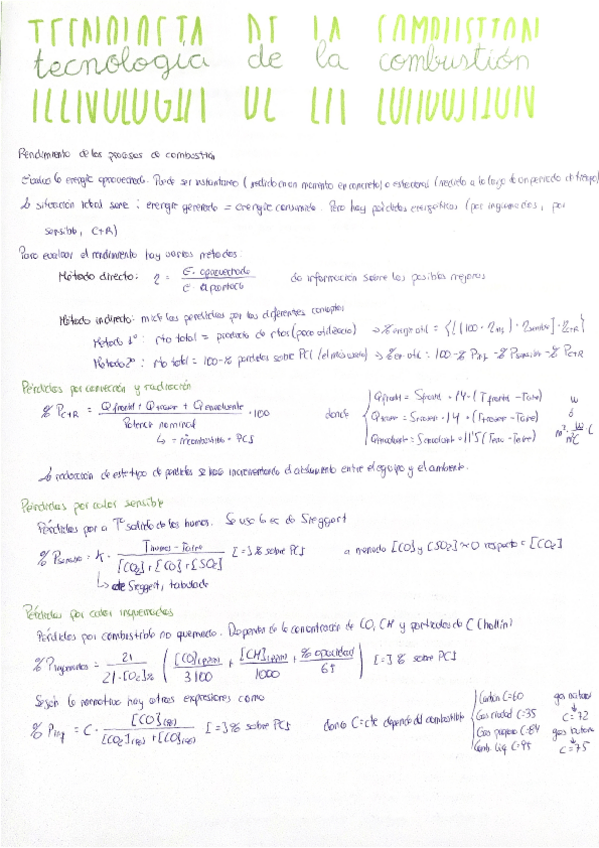 tecnología de la combustión
Rendimiento de los procesos de combustión
Evalúa la energía aprovechada. Puede ser instantáneo (medido en un momento en concreto) o estacional (medido a lo largo de un periodo de tiempo)
La situación ideal sería: energía generada = energía consumida. Pero hay pérdidas energéticas (por inquemados, por
sensible, C+R)
Para evaluar el rendimiento hay varios métodos:
Método directo: η = E. aprovechada / E aportada da información sobre las posibles mejoras
Método indirecto: mide las pérdidas por los diferentes conceptos
Método 1º: rto total = producto de rtos (poco utilizado) => % engía útil =
Método 2º: rto total = 100 - % pérdidas sobre PCI (el más usado) => % en útil = 100 - % Pinq - % Psensible - % PC+R
Pérdidas por convección y radiación
% PC+R = (Qfrontal + Qtrasera + Qenvolvente) / Potencia nominal · 100 donde
Qfrontal = Sfrontal · 14 · (Tfrontal - Taire) W
Qtrasera = Strasera · 14 · (Ttrasera - Taire) ó
Qenvolvent = Senvolvent · 11'5 (Tenv - Taire)
= mcombustible · PCS
La reducción de este tipo de pérdidas se hace incrementando el aislamiento entre el equipo y el ambiente.
Pérdidas por calor sensible
Pérdidas por a Tº salida de los humos. Se usa la ec de Sieggert
% Psensible = K · (Thumos - Taire) / ([CO2] + [CO] + [SO2]) [=] % sobre PCS a menudo [CO] y [SO2] ≈ 0 respecto a [CO2]
cte Sieggert, tabulada
Pérdidas por calor inquemados
Pérdidas por combustible no quemado. Dependen de la concentración de CO, CH y partículas de C (hollín)
% Pinquemados = 21 / (21 - [O2]%) ([CO](ppm) / 3100 + [CH](ppm) / 1000 + % opacidad / 65) [=] % sobre PCS
Según la normativa hay otras expresiones como
% Pinq = C · [CO](%) / ([CO2](%) + [CO](%)) [=] % sobre PCS donde C = cte depende del combustible
Carbón C=60 gas natural
Gas ciudad C=35 C=72
Gas propano C=84 gas butano
Comb. Liq C=95 C=75